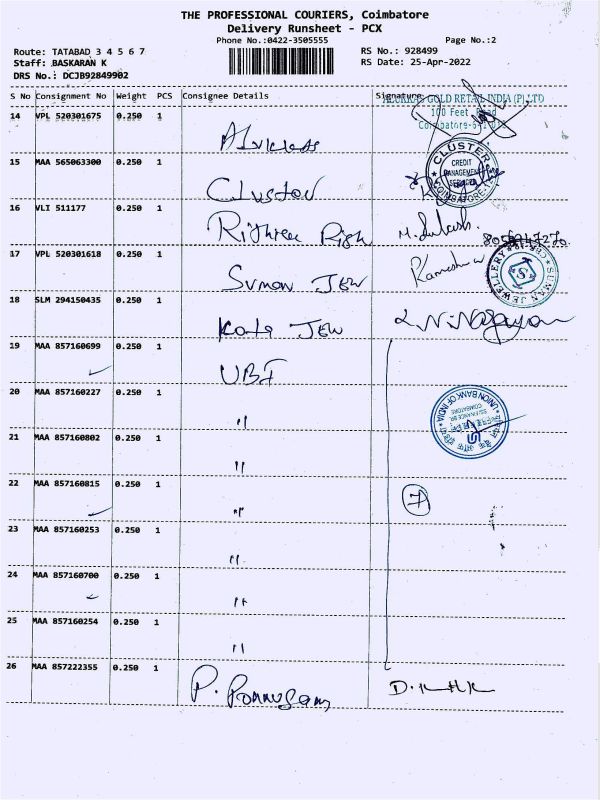 THE PROFESSIONAL COURIERS, Coimbatore
Delivery Runsheet - PCX
Phone No.:0422-3505555
Page No.:2
Route: TATABAD 3 4 5 6 7
RS No.: 928499
Staff: BASKARAN K
RS Date: 25-Apr-2022
DRS No.: DCJB92849902
S No Consignment No Weight PCS Consignee Details Signature
ALUKKAS GOLD RETAIL INDIA (P) LTD
100 Feet Road
14 VPL 520301675 0.250 1
CLUSTER
CREDIT MANAGEMENT SERVICES
COIMBATORE
15 MAA 565063300 0.250 1 Cluster
16 VLI 511177 0.250 1
17 VPL 520301618 0.250 1 Suman JEW
SUMAN JEWELLERY
S
18 SLM 294150435 0.250 1 JEW
19 MAA 857160699 0.250 1 UBI
20 MAA 857160227 0.250 1 "
UNION BANK OF INDIA
COIMBATORE
21 MAA 857160802 0.250 1 "
22 MAA 857160815 0.250 1 "
7
23 MAA 857160253 0.250 1 "
24 MAA 857160700 0.250 1 "
25 MAA 857160254 0.250 1 "
26 MAA 857222355 0.250 1